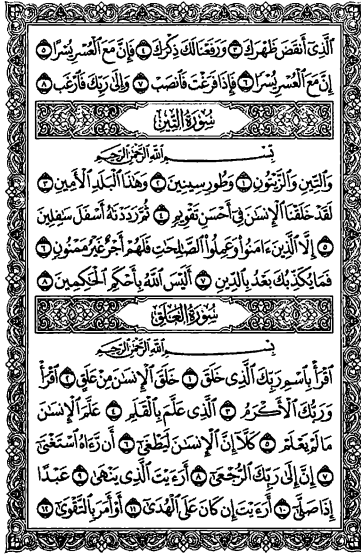 ٱلَّذِىٓ أَنقَضَ ظَهْرَكَ ٣ وَرَفَعْنَا لَكَ ذِكْرَكَ ٤ فَإِنَّ مَعَ ٱلْعُسْرِ يُسْرًا ٥
إِنَّ مَعَ ٱلْعُسْرِ يُسْرًا ٦ فَإِذَا فَرَغْتَ فَٱنصَبْ ٧ وَإِلَىٰ رَبِّكَ فَٱرْغَب ٨
سُورَةُ ٱلتِّينِ
بِسْمِ ٱللَّهِ ٱلرَّحْمَٰنِ ٱلرَّحِيمِ
وَٱلتِّينِ وَٱلزَّيْتُونِ ١ وَطُورِ سِينِينَ ٢ وَهَٰذَا ٱلْبَلَدِ ٱلْأَمِينِ ٣
لَقَدْ خَلَقْنَا ٱلْإِنسَٰنَ فِىٓ أَحْسَنِ تَقْوِيمٍ ٤ ثُمَّ رَدَدْنَٰهُ أَسْفَلَ سَٰفِلِينَ
٥ إِلَّا ٱلَّذِينَ ءَامَنُوا۟ وَعَمِلُوا۟ ٱلصَّٰلِحَٰتِ فَلَهُمْ أَجْرٌ غَيْرُ مَمْنُونٍ ٦
فَمَا يُكَذِّبُكَ بَعْدُ بِٱلدِّينِ ٧ أَلَيْسَ ٱللَّهُ بِأَحْكَمِ ٱلْحَٰكِمِينَ ٨
سُورَةُ ٱلْعَلَقِ
بِسْمِ ٱللَّهِ ٱلرَّحْمَٰنِ ٱلرَّحِيمِ
ٱقْرَأْ بِٱسْمِ رَبِّكَ ٱلَّذِى خَلَقَ ١ خَلَقَ ٱلْإِنسَٰنَ مِنْ عَلَقٍ ٢ ٱقْرَأْ
وَرَبُّكَ ٱلْأَكْرَمُ ٣ ٱلَّذِى عَلَّمَ بِٱلْقَلَمِ ٤ عَلَّمَ ٱلْإِنسَٰنَ
مَا لَمْ يَعْلَمْ ٥ كَلَّآ إِنَّ ٱلْإِنسَٰنَ لَيَطْغَىٰٓ ٦ أَن رَّءَاهُ ٱسْتَغْنَىٰٓ
٧ إِنَّ إِلَىٰ رَبِّكَ ٱلرُّجْعَىٰٓ ٨ أَرَءَيْتَ ٱلَّذِى يَنْهَىٰ ٩ عَبْدًا
إِذَا صَلَّىٰٓ ١٠ أَرَءَيْتَ إِن كَانَ عَلَى ٱلْهُدَىٰٓ ١١ أَوْ أَمَرَ بِٱلتَّقْوَىٰٓ ١٢